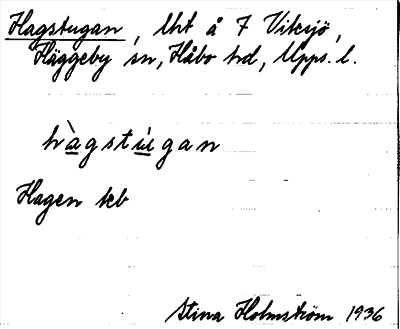 Hagstugan, lht å 7 Viksjö,
Häggeby sn, Håbo hd, Upps. l.
hàgstùgan
Hagen kb
Stina Holmström 1936